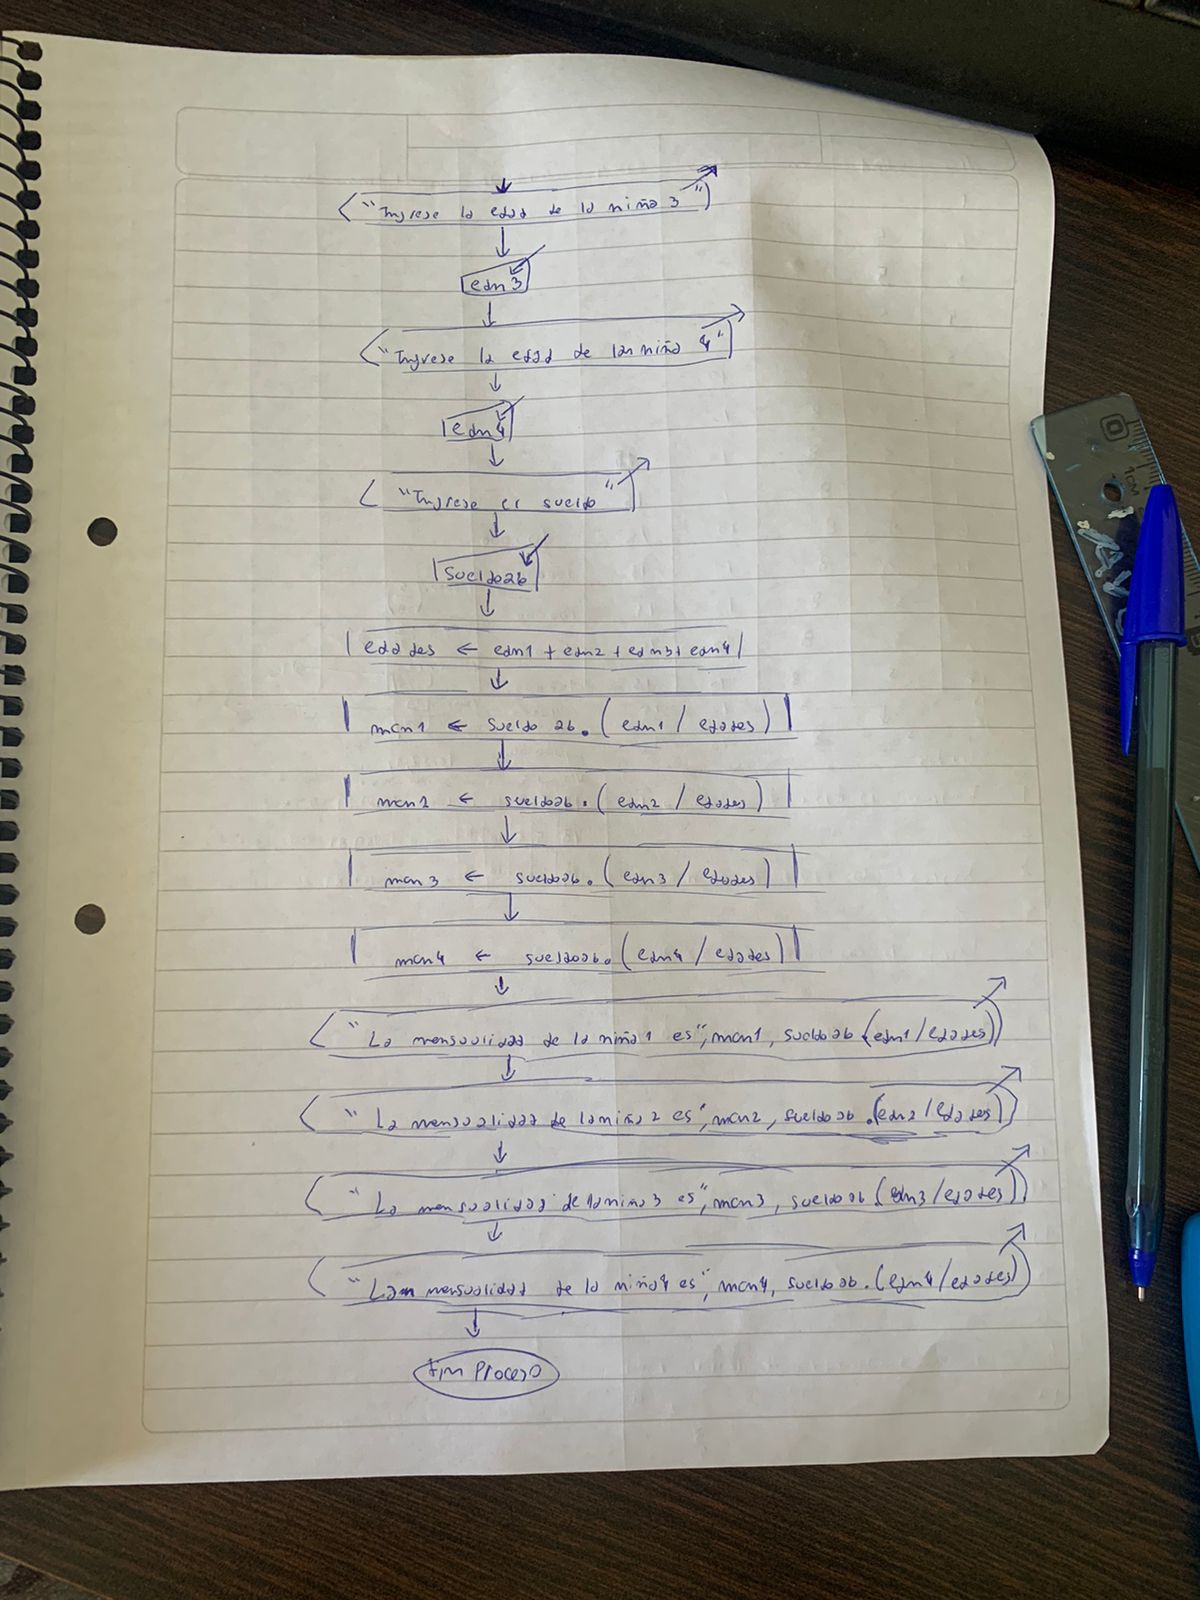 "Ingrese la edad de la niña 3"
edn3
"Ingrese la edad de la niña 4"
edn4
"Ingrese el sueldo"
sueldoab
edades ← edn1 + edn2 + edn3 + edn4
mcn1 ← sueldo ab. (edn1 / edades)
mcn2 ← sueldoab. (edn2 / edades)
mcn3 ← sueldoab. (edn3 / edades)
mcn4 ← sueldoab. (edn4 / edades)
"La mensualidad de la niña 1 es", mcn1, sueldoab.(edn1/edades)
"La mensualidad de la niña 2 es", mcn2, sueldoab.(edn2/edades)
"La mensualidad de la niña 3 es", mcn3, sueldoab.(edn3/edades)
"La mensualidad de la niña 4 es", mcn4, sueldoab.(edn4/edades)
Fin Proceso